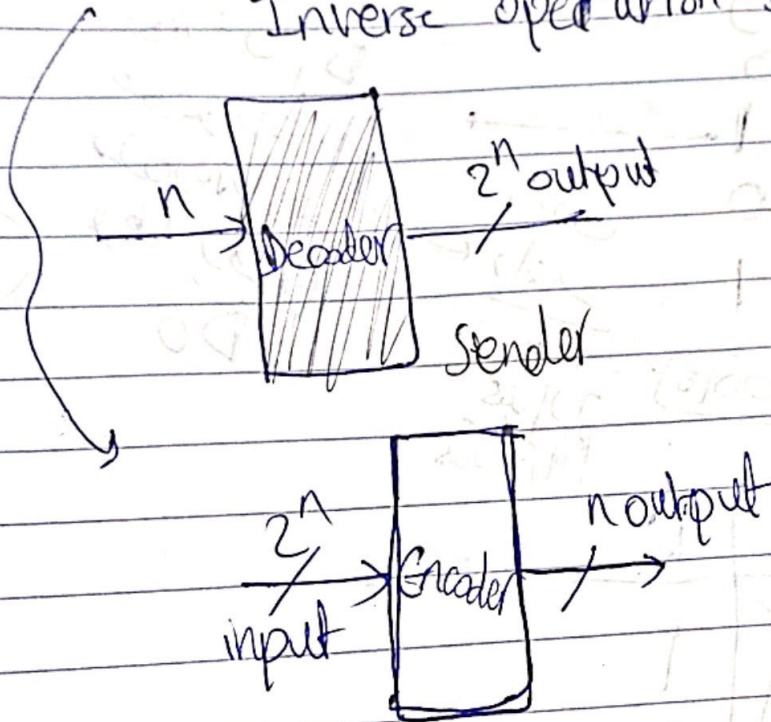 Inverse operation
n
Decoder
2^n output
Sender
2^n
input
Encoder
n output